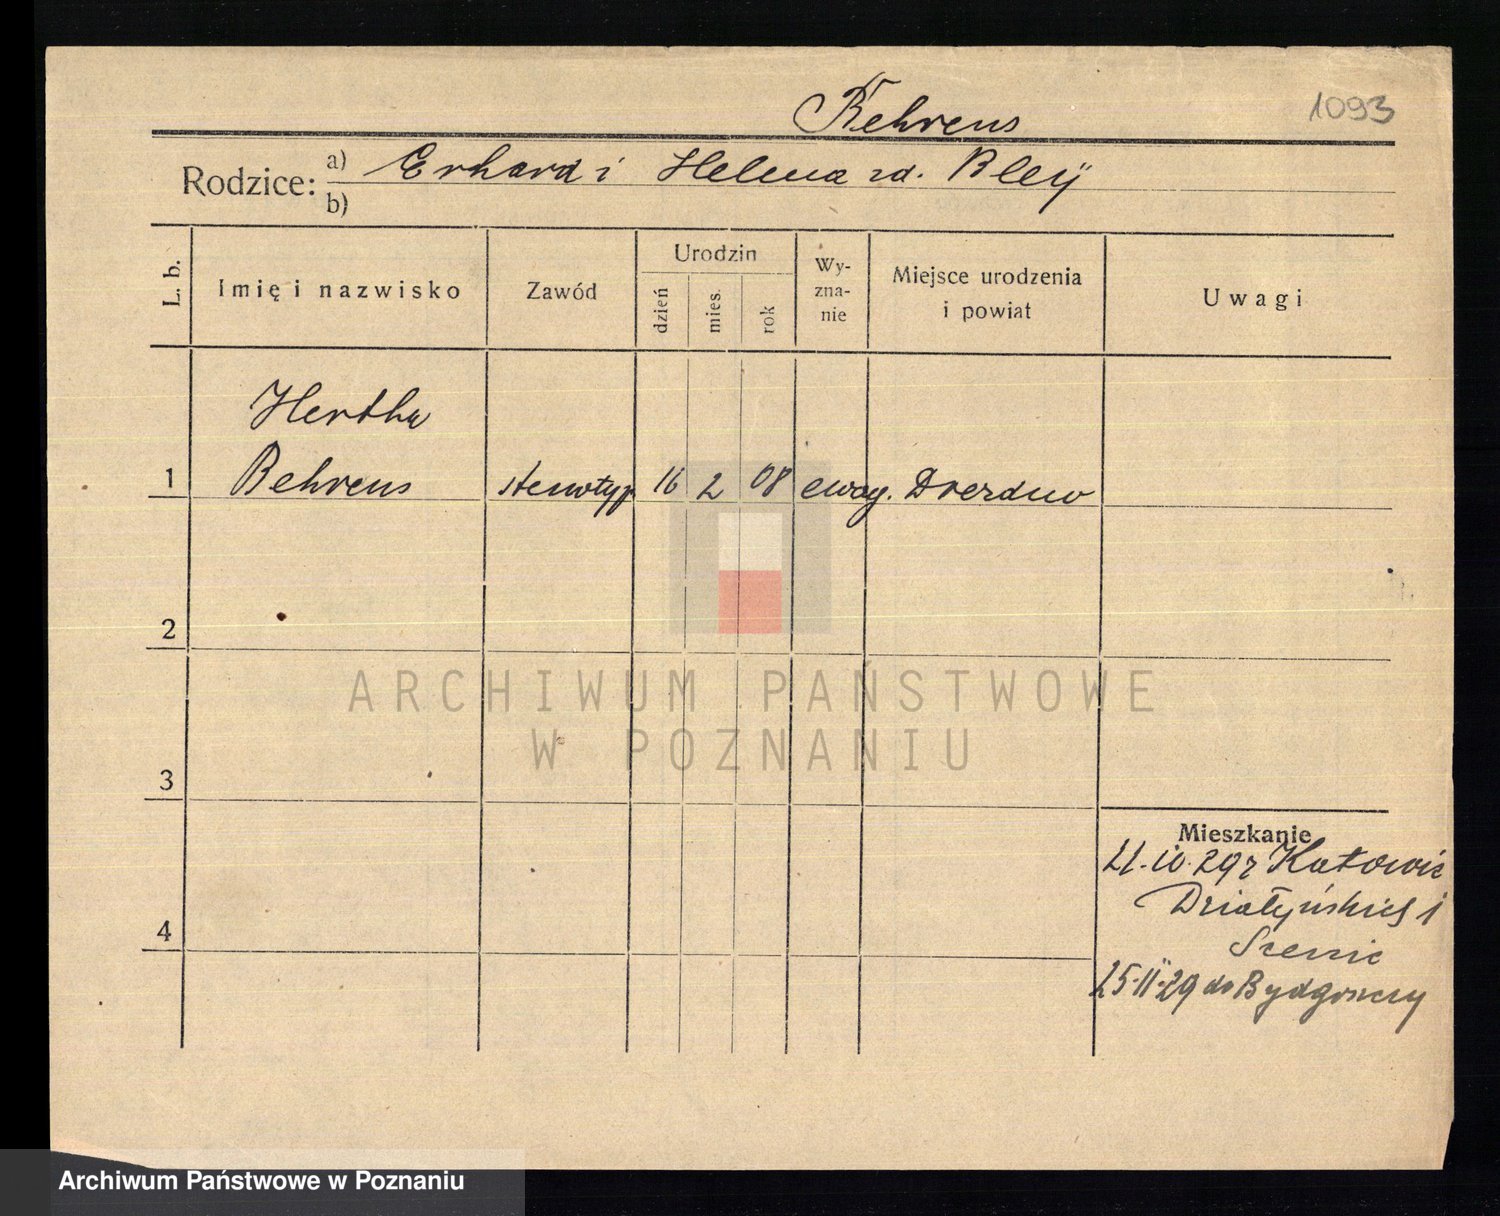 Behrens
1093
Rodzice: a) Erhard i Helena zd. Bleÿ
b)
L. b. Imię i nazwisko Zawód Urodzin dzień mies. rok Wy-zna-nie Miejsce urodzenia i powiat Uwagi
Hertha
1 Behrens stenotyp 16 2 08 ewag. Drezdno
2
ARCHIWUM PAŃSTWOWE
W POZNANIU
3
Mieszkanie
29r Katowic
Działyńskich 1
4
25.11.29 do Bydgoszczy
Archiwum Państwowe w Poznaniu